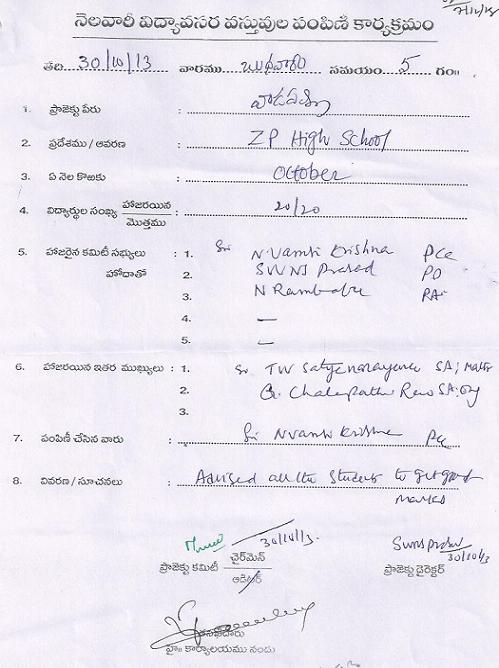 నెలవారీ విద్యావసర వస్తువుల పంపిణీ కార్యక్రమం
తేది 30/10/13 వారము బుధవారం సమయం 5 గం॥
1. ప్రాజెక్టు పేరు :
2. ప్రదేశము / ఆవరణ : ZP High School
3. ఏ నెల కొఱకు : October
4. విద్యార్థుల సంఖ్య హాజరయిన మొత్తము : 20/20
5. హాజరైన కమిటీ సభ్యులు : 1. Sri N Vamsi Krishna PCC
హోదాతో 2. SWNS Prasad PD
3. N Rambabu
4. —
5. —
6. హాజరయిన ఇతర ముఖ్యులు : 1. Sri TW Satyanarayana SA; Maths
2. G. Chalapathi Rao SA;
3.
7. పంపిణీ చేసిన వారు : Sri N Vamsi Krishna PCC
8. వివరణ / సూచనలు : Advised all the students to get good
marks
30/10/13
ప్రాజెక్టు కమిటీ ఛైర్‌మెన్
ఆడిటర్
30/10/13
ప్రాజెక్టు డైరెక్టర్
హై॥ కార్యాలయము నందు